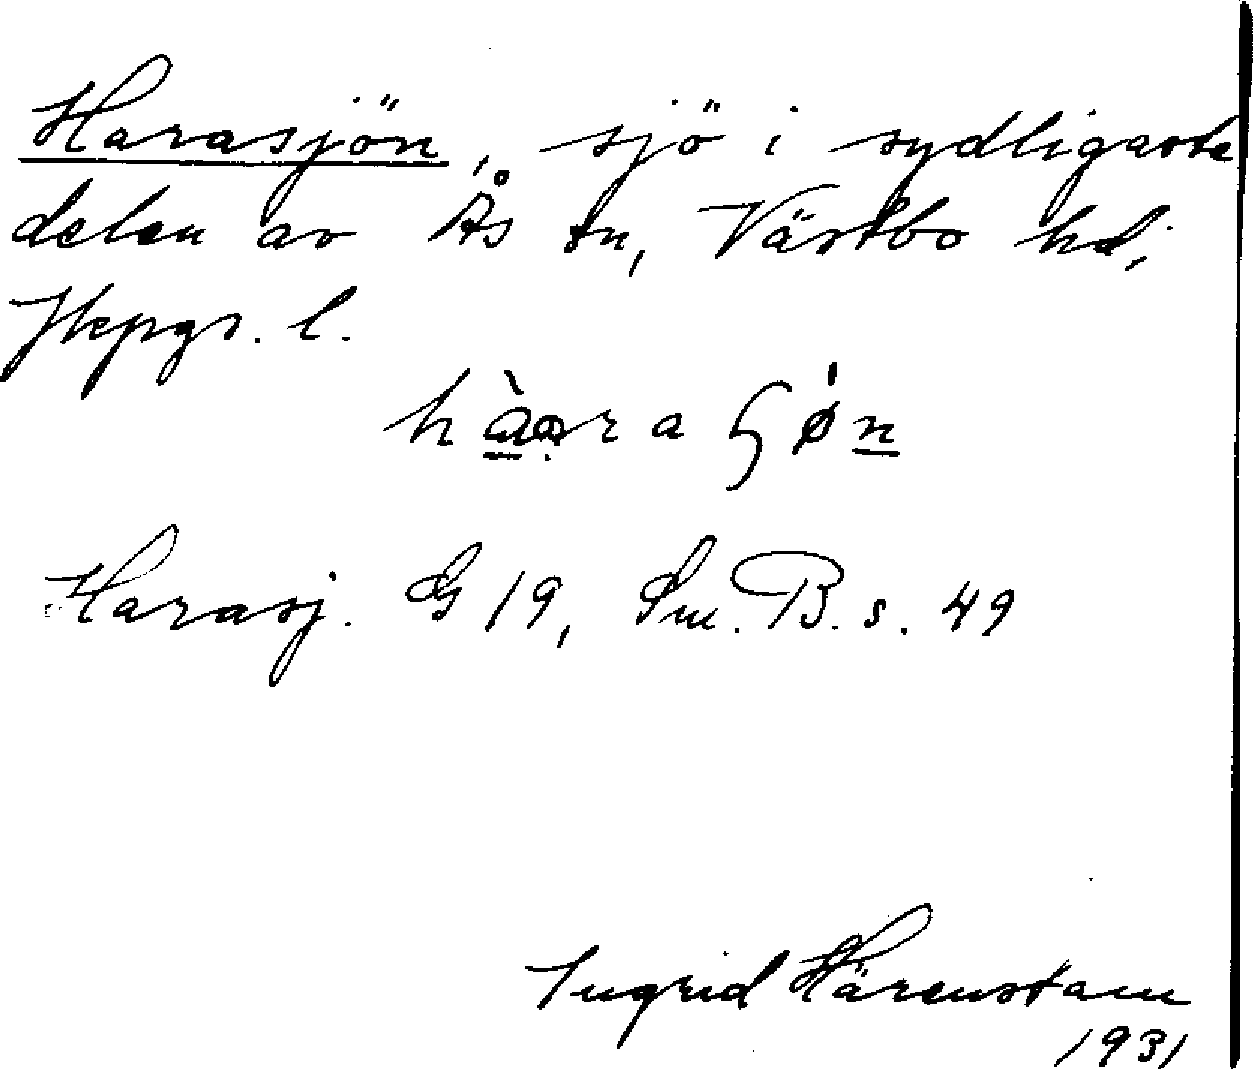 Harasjön, sjö i sydligaste
delen av Ås sn, Västbo hd,
Jkpgs. l.
Harasj. G 19, Sm. B. s. 49
Ingrid Härenstam
1931